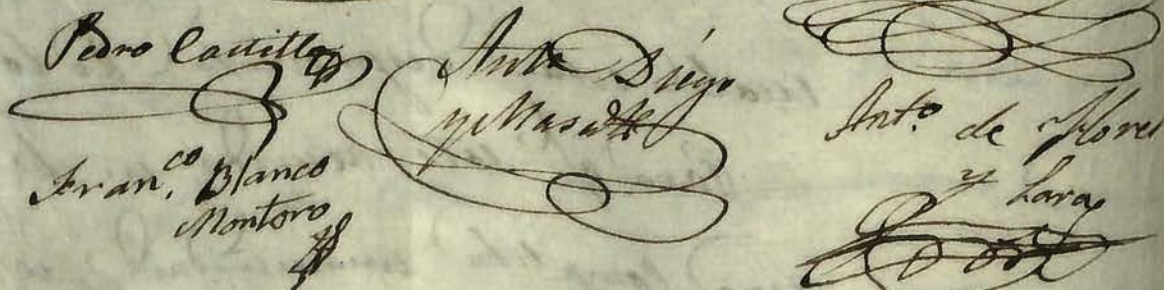 Pedro Castillo
Fran.co Blanco
Montoro
Anto Diego
y
Ant.o de Flores
y Lara